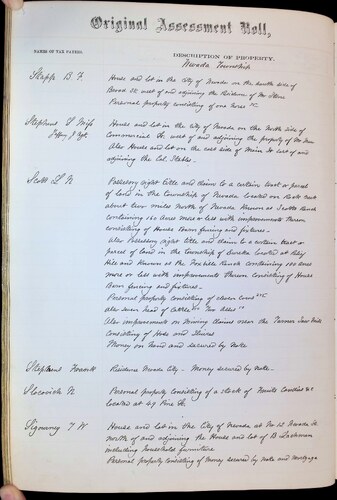 Original Assessment Roll,
NAMES OF TAX PAYERS.
DESCRIPTION OF PROPERTY.
Nevada Township
House and lot in the City of Nevada on the south side of
Broad St west of and adjoining the Residence of
Personal property consisting of one Horse &c
House and lot in the City of Nevada on the North side of
Commercial St. west of and adjoining the property of
Also House and lot on the east side of Main St east of and
adjoining the
Scott L N
Possessory right title and claim to a certain tract or parcel
of land in the township of Nevada located on
about two miles north of Nevada Known as Scotts Ranch
containing 160 acres more or less with improvements thereon
consisting of House Barn fencing and fixtures -
Also Possessory right title and claim to a certain tract or
parcel of land in the township of Eureka located at
Hill and Known as the Ranch containing 100 acres
more or less with improvements thereon consisting of House
Barn fencing and fixtures -
Personal property consisting of eleven Cows
Also seven head of Cattle Two
Also improvements on Mining Claims near the Saw Mill
consisting of and
Money on hand and secured by Note
Frank
Residence Nevada City - Money secured by Note -
N
Personal property consisting of a stock of &c
located at 47 Pine St,
Sigourney T W
House and lot in the City of Nevada at No 12 Nevada St
north of and adjoining the House and lot of B
including Household furniture
Personal property consisting of Money secured by note and Mortgage